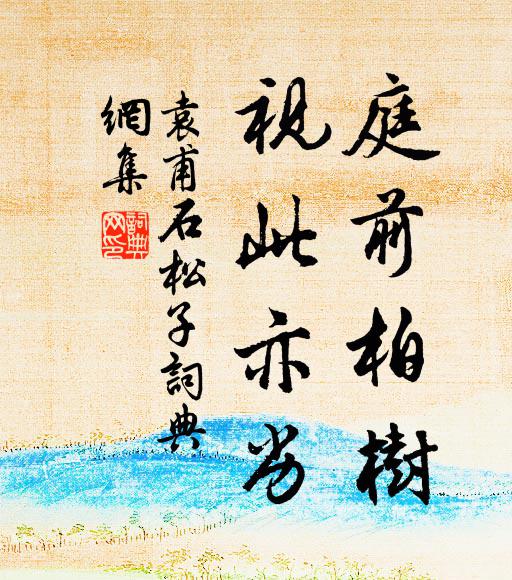 庭前柏樹
視此亦劣
袁甫石松子詞典
網集
詞典網印